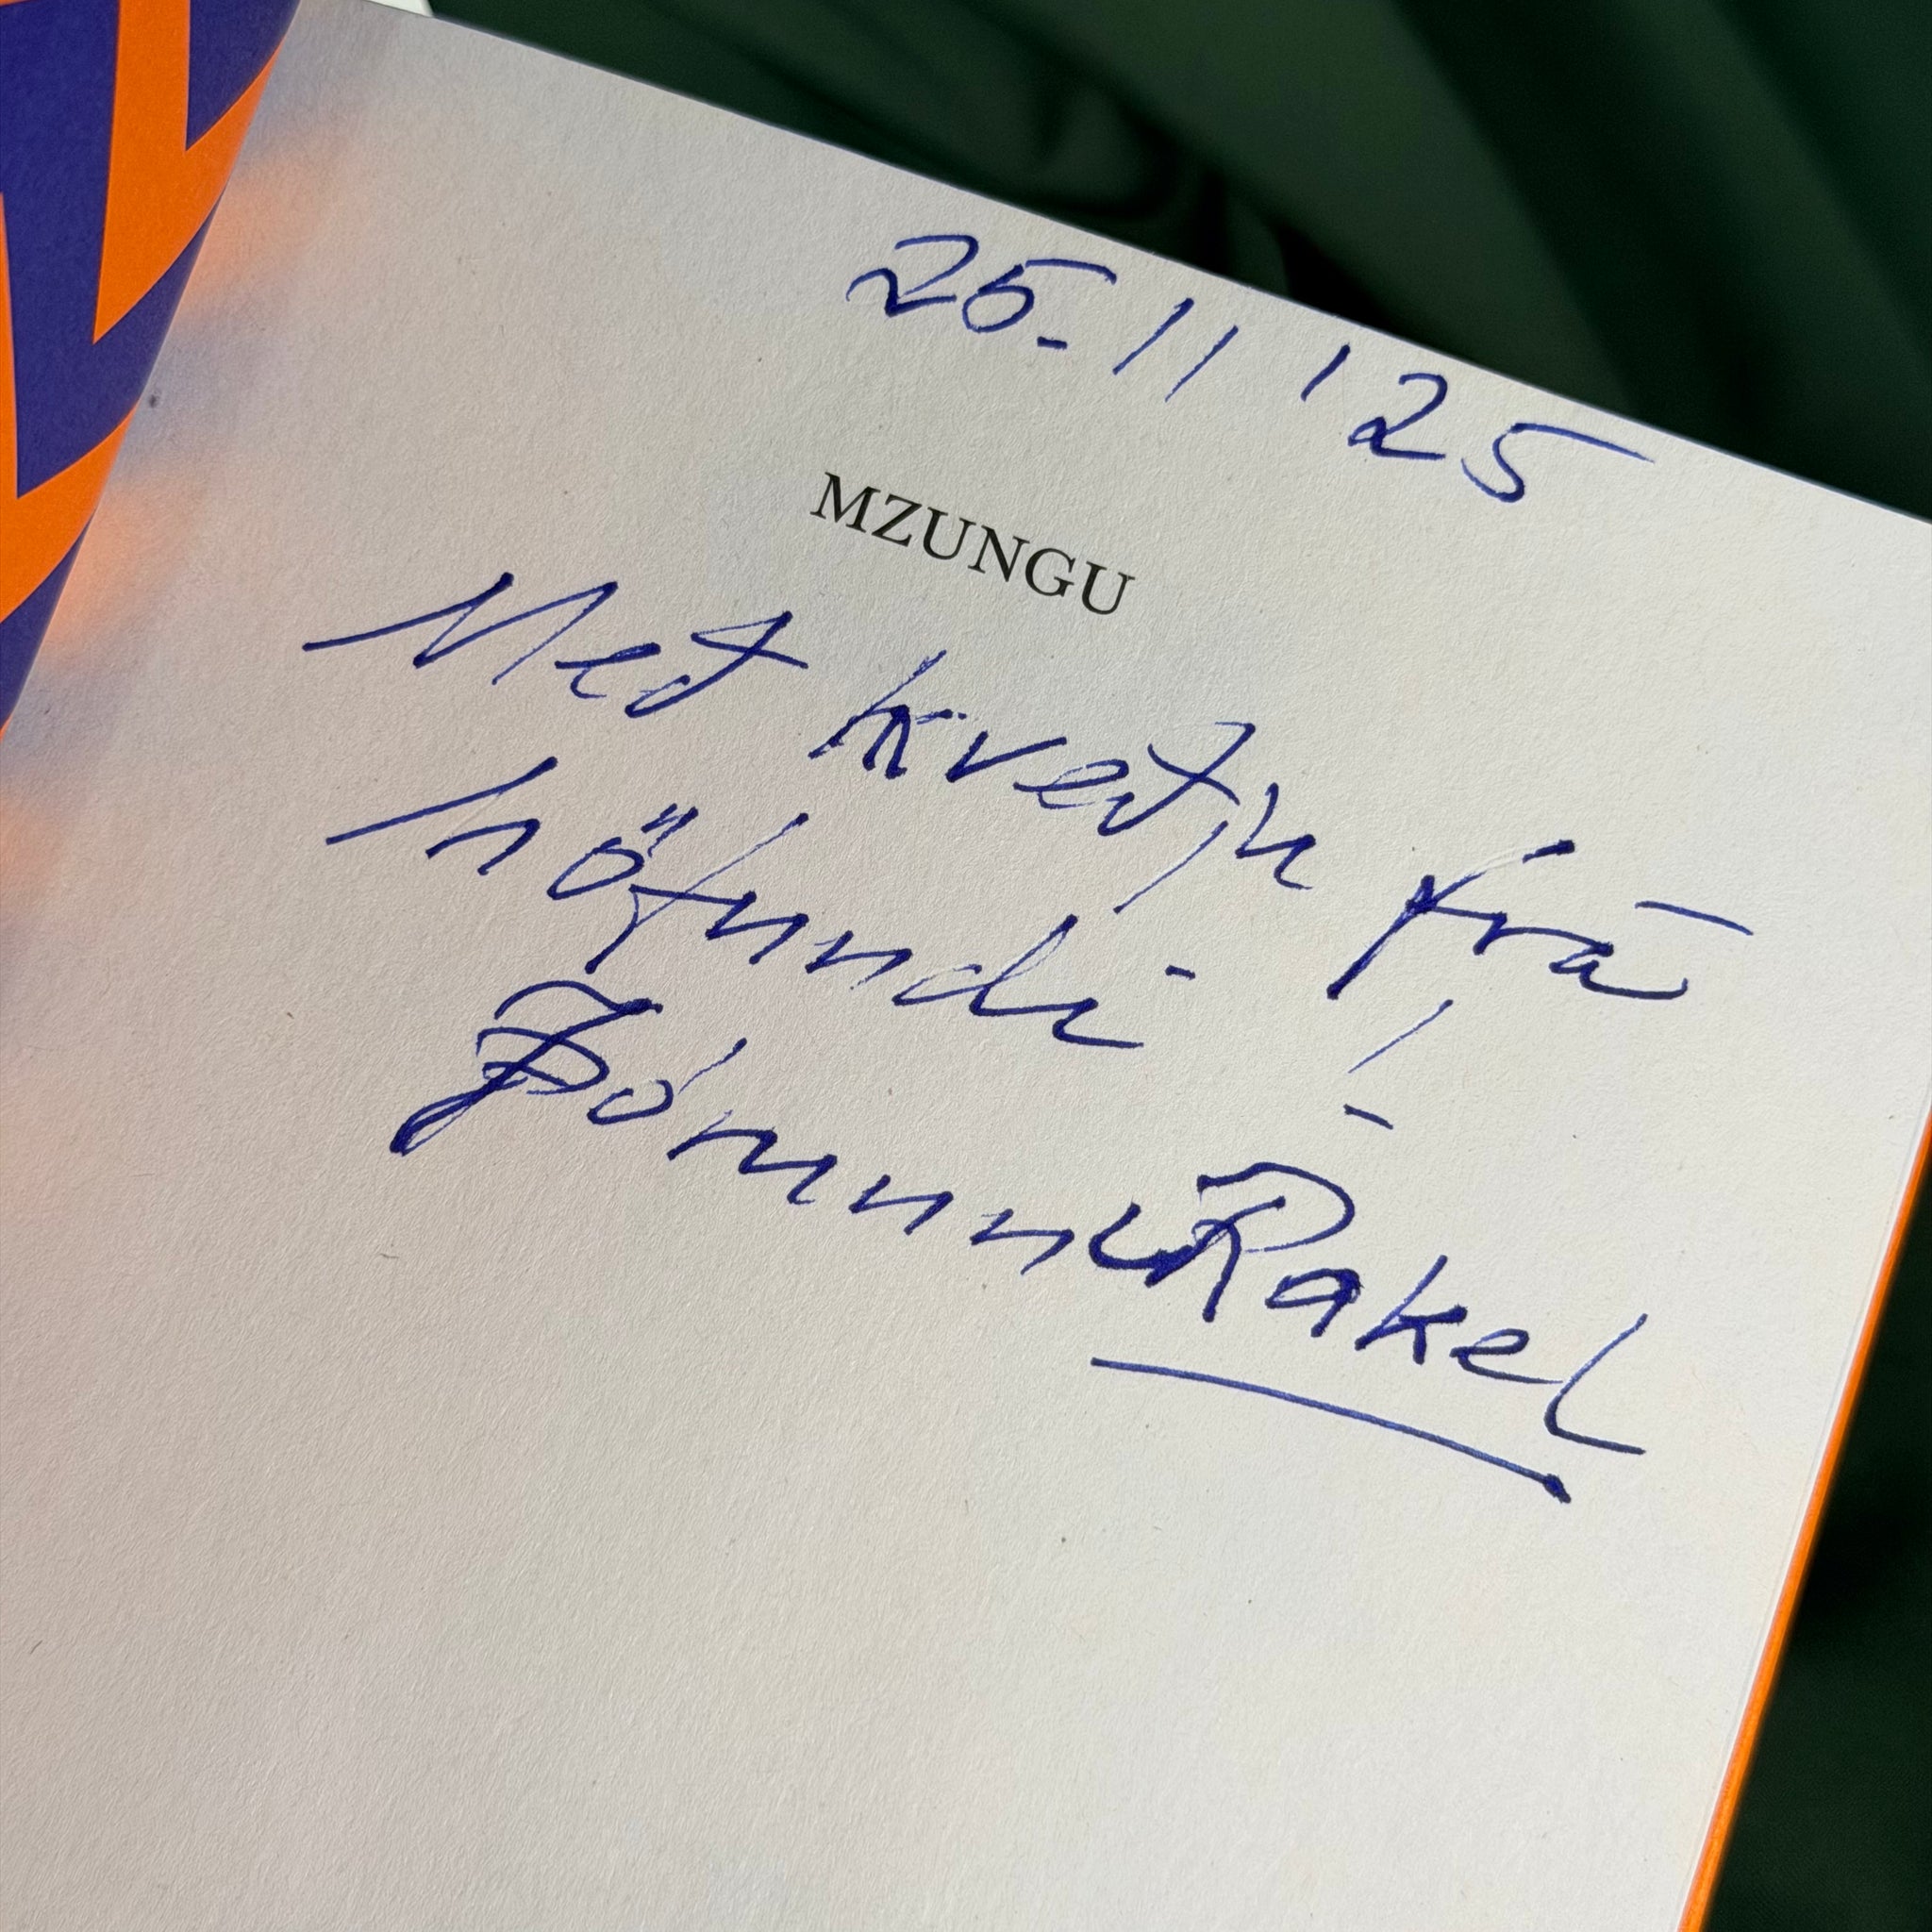 25.11 '25
MZUNGU
Með kveðju frá
höfundi!
Þórunn Rakel